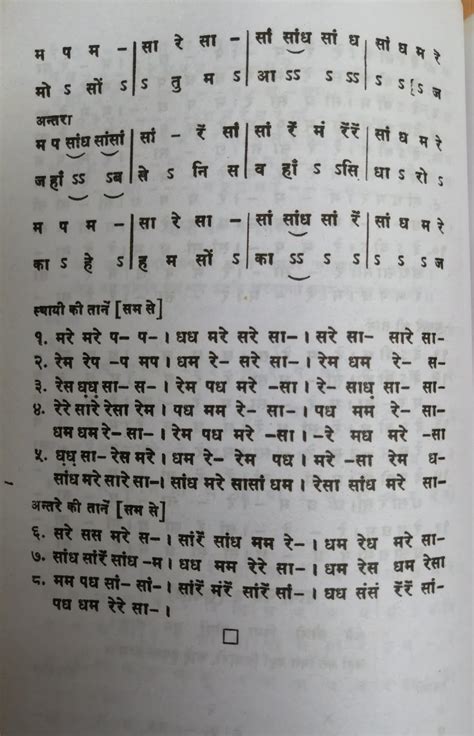 म प म – | सा रे सा – | सां सांध सां ध | सां ध म रे
मो ऽ सों ऽ | ऽ तु म ऽ | आ ऽऽ ऽ ऽऽ | ऽ ऽ ऽ ज
अन्तरा
म प सांध सांसां | सां – रें सां | सां रें मं रेंरें | सां ध म रे
ज हाँ ऽऽ ऽब | ले ऽ नि स | व हाँ ऽ ऽसि | धा ऽ रो ऽ
म प म – | सा रे सा – | सां सांध सां रें | सां ध म रे
का ऽ हे ऽ | ह म सों ऽ | का ऽऽ ऽ ऽ | ऽ ऽ ऽ ज
स्थायी की तानें [सम से]
१. मरे मरे प– प–। धध मरे सरे सा–। सरे सा– सारे सा–
२. रेम रेप –प मप। धम रे– सा– रेसा–। रेम धम रे– स–
३. रेस ध़ध़ सा– स–। रेम पध मरे –सा। रे– साध़ सा– सा–
४. रेरे सारे रेसा रेम। पध मम रे– सा–। पध मम रे– सा–
धम धम रे– सा–। रेम पध मरे –सा। –रे मध मरे –सा
५. ध़ध़ सा– रेस मरे। धम रे– रेम पध। मरे –सा रेम ध–
सांध मरे सारे सा–। सांध मरे सासां धम। रेसा सांध मरे सा–
अन्तरे की तानें [सम से]
६. सरे सस मरे स–। सांरें सांध मम रे–। धम रेध मरे सा–
७. सांध सांरें सांध –म। धध मम रेरे सा–। रेम रेस धम रेसा
८. मम पध सां– सां–। सांरें मंरें सांरें सां–। धध संसं रेंरें सां–
पध धम रेरे सा–।